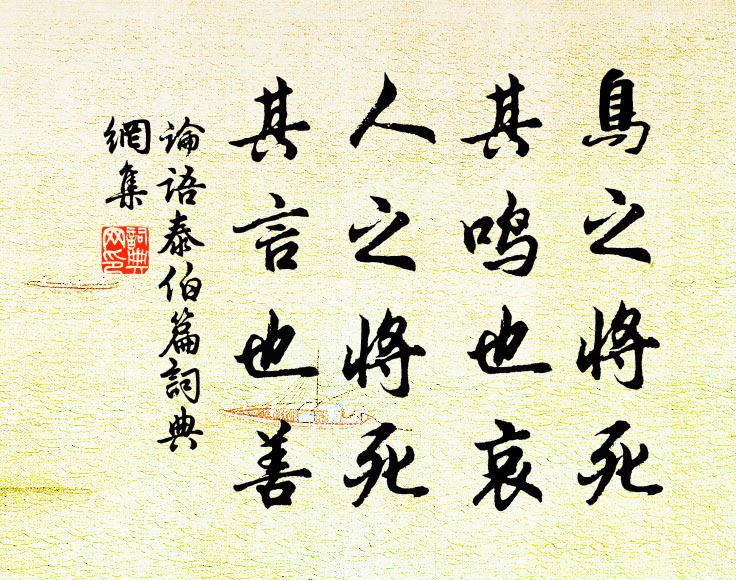 鳥之將死
其鳴也哀
人之將死
其言也善
論語泰伯篇詞典
網集
詞典
网印